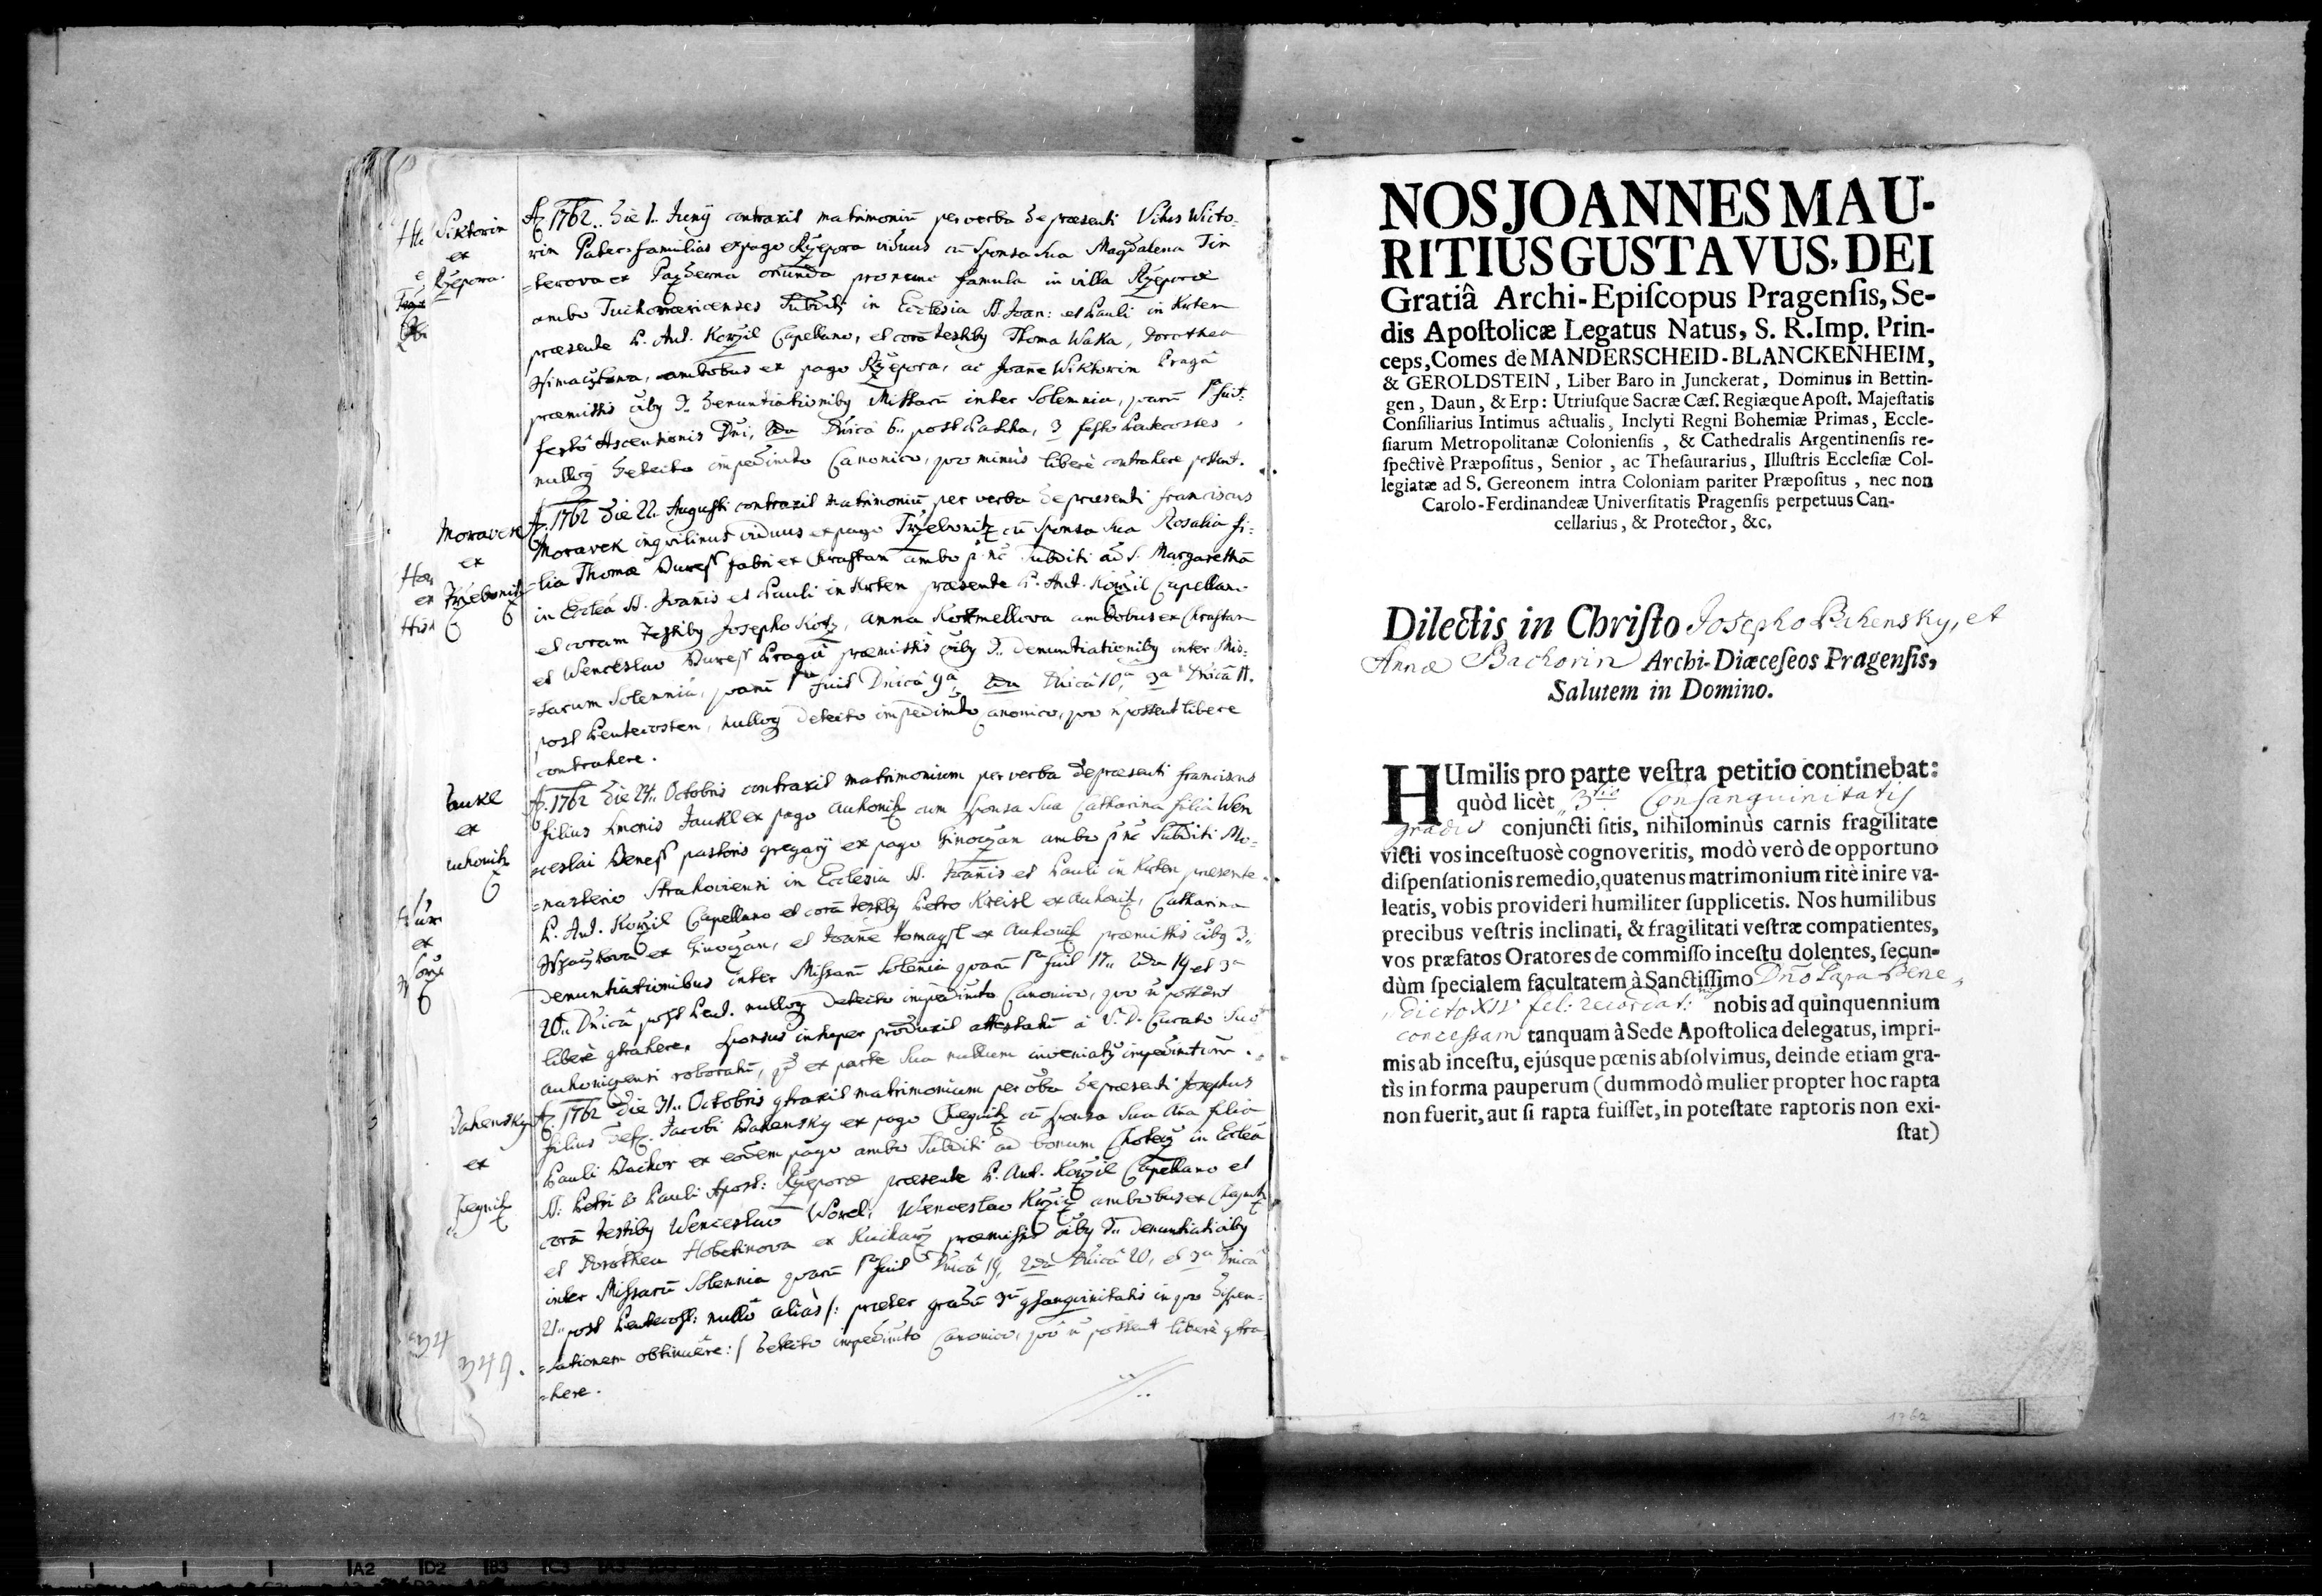 Wiktorin
ex
Rzepora.
A. 1762.. Die 1. Junij contraxit matrimoniũ per verba de praesenti Vitus Wicto=
rin Pater familias ex pago Rzepora viduus cũ sponsa sua Magdalena Tin
=terova ex oriunda pro nunc famula in villa Rzepora
ambo Tuchomericenses Subditi in Ecclesia SS. Joan: et Pauli in Krten
praesente P. Ant. Korzil Capellano, et corã testiby Thoma Waka, Dorothea
ambobus ex pago Rzepora, ac Joañe Wiktorin Pragâ
praemissis 3. denuntiationiby Missarũ inter Solemnia, quarũ 1ma fuit
festô Ascensionis Dñi, 2da Dñicâ 6.. post Pascha, 3 festo Pentecostes
nulloq detecto impedimto Canonico, quo minùs liberè contrahere possent.
Moravek
ex
Trzebonitz
A. 1762 Die 22. Augusti contraxit matrimoniũ per verba de praesenti Franciscus
Moravek inqvilinus viduus ex pago Trzebonitz cũ sponsa sua Rosalia fi=
=lia Thomae Buress fabri ex Chrasstan ambo p. nc Subditi ad S. Margarethã
in Ecclea SS. Joañis et Pauli in Krten praesente P. Ant. Korzil Capellano
et coram Testiby Josepho Kotz, Anna ambobus ex Chrasstan
et Wenceslao Buress Pragâ praemissis 3.. denuntiationiby inter Mis=
=sarum Solemnia, quarũ 1ma fuit Dñicâ 9a, 2da Dñicâ 10a, 3a Dñicâ 11.
post Pentecosten, nulloq detecto impedimto Canonico, quo ñ possent libere
contrahere.
Jaukl
ex
Auhonitz
A. 1762 Die 24.. Octobris contraxit matrimonium per verba de praesenti Franciscus
filius Simonis Jaukl ex pago Auhonitz cum sponsa sua Catharina filia Wen
=ceslai Beness pastoris gregarij ex pago Ginoczan ambo p nc Subditi Mo=
=nasterio Strahoviensi in Ecclesia SS. Joañis et Pauli in Krten praesente
P. Ant. Korzil Capellano et corã testiby Petro Kreisl ex Auhonitz, Catharina
ex Ginoczan, et Joañe ex Auhonitz praemissis 3..
Denuntiationibus inter Missarũ Solemnia quarũ 1ma fuit 17.. 2da 19 et 3a
20.. Dñicâ post Pent. nulloq detecto impedimto Canonico, quo ñ possent
liberè gtrahere. Sponsus insuper produxit attestatũ â V. D. Curato suo
roboratũ, qd ex parte sua nullum inveniatur impedimtum.
Bahensky
ex
Chegnitz
A. 1762 Die 31.. Octobris gtraxit matrimonium per vba de praesenti Josephus
filius Def. Jacobi Bahensky ex pago Chegnitz cũ sponsa sua Aña filia
Pauli Bachor ex eodem pago ambo Subditi ad bonum Chotecz in Ecclea
SS: Petri & Pauli Apost: Rzeporae praesente P. Ant. Korzil Capellano et
corã testiby Wenceslao Worel, Wenceslao ambobus ex Chegnitz
et Dorothea Hobetinova ex Kucharz praemissis 3.. denuntiatioiby
inter Missarũ Solemnia quarũ 1ma fuit Dñicâ 19, 2da Dñicâ 20, et 3a Dñicâ
21.. post Pentecost: nullo aliàs /: praeter gradũ 3ũ gsangvinitatis in quo dispen=
=sationem obtinuêre :/ detecto impedimto Canonico, quô ñ possent liberè gtra=
=here.
34
349.
NOS JOANNES MAU-
RITIUS GUSTAVUS, DEI
Gratiâ Archi-Epiſcopus Pragenſis, Se-
dis Apoſtolicæ Legatus Natus, S. R. Imp. Prin-
ceps, Comes de MANDERSCHEID-BLANCKENHEIM,
& GEROLDSTEIN, Liber Baro in Junckerat, Dominus in Bettin-
gen, Daun, & Erp: Utriuſque Sacræ Cæſ. Regiæque Apoſt. Majeſtatis
Conſiliarius Intimus actualis, Inclyti Regni Bohemiæ Primas, Eccle-
ſiarum Metropolitanæ Colonienſis, & Cathedralis Argentinenſis re-
ſpectivè Præpoſitus, Senior, ac Theſaurarius, Illuſtris Eccleſiæ Col-
legiatæ ad S. Gereonem intra Coloniam pariter Præpoſitus, nec non
Carolo-Ferdinandeæ Univerſitatis Pragenſis perpetuus Can-
cellarius, & Protector, &c.
Dilectis in Chriſto Josepho Bahensky, et
Annæ Bachorin Archi-Diœceſeos Pragenſis,
Salutem in Domino.
HUmilis pro parte veſtra petitio continebat:
quòd licèt 3tio Consanguinitatis
gradu conjuncti ſitis, nihilominùs carnis fragilitate
victi vos inceſtuosè cognoveritis, modò verò de opportuno
diſpenſationis remedio, quatenus matrimonium ritè inire va-
leatis, vobis provideri humiliter ſupplicetis. Nos humilibus
precibus veſtris inclinati, & fragilitati veſtræ compatientes,
vos præfatos Oratores de commiſſo inceſtu dolentes, ſecun-
dùm ſpecialem facultatem à Sanctiſſimo Dño Papa Bene
dicto XIV fel: recordat: nobis ad quinquennium
concessam tanquam à Sede Apoſtolica delegatus, impri-
mis ab inceſtu, ejúsque pœnis abſolvimus, deinde etiam gra-
tìs in forma pauperum (dummodò mulier propter hoc rapta
non fuerit, aut ſi rapta fuiſſet, in poteſtate raptoris non exi-
ſtat)
1762
A2 D2 B3 C3